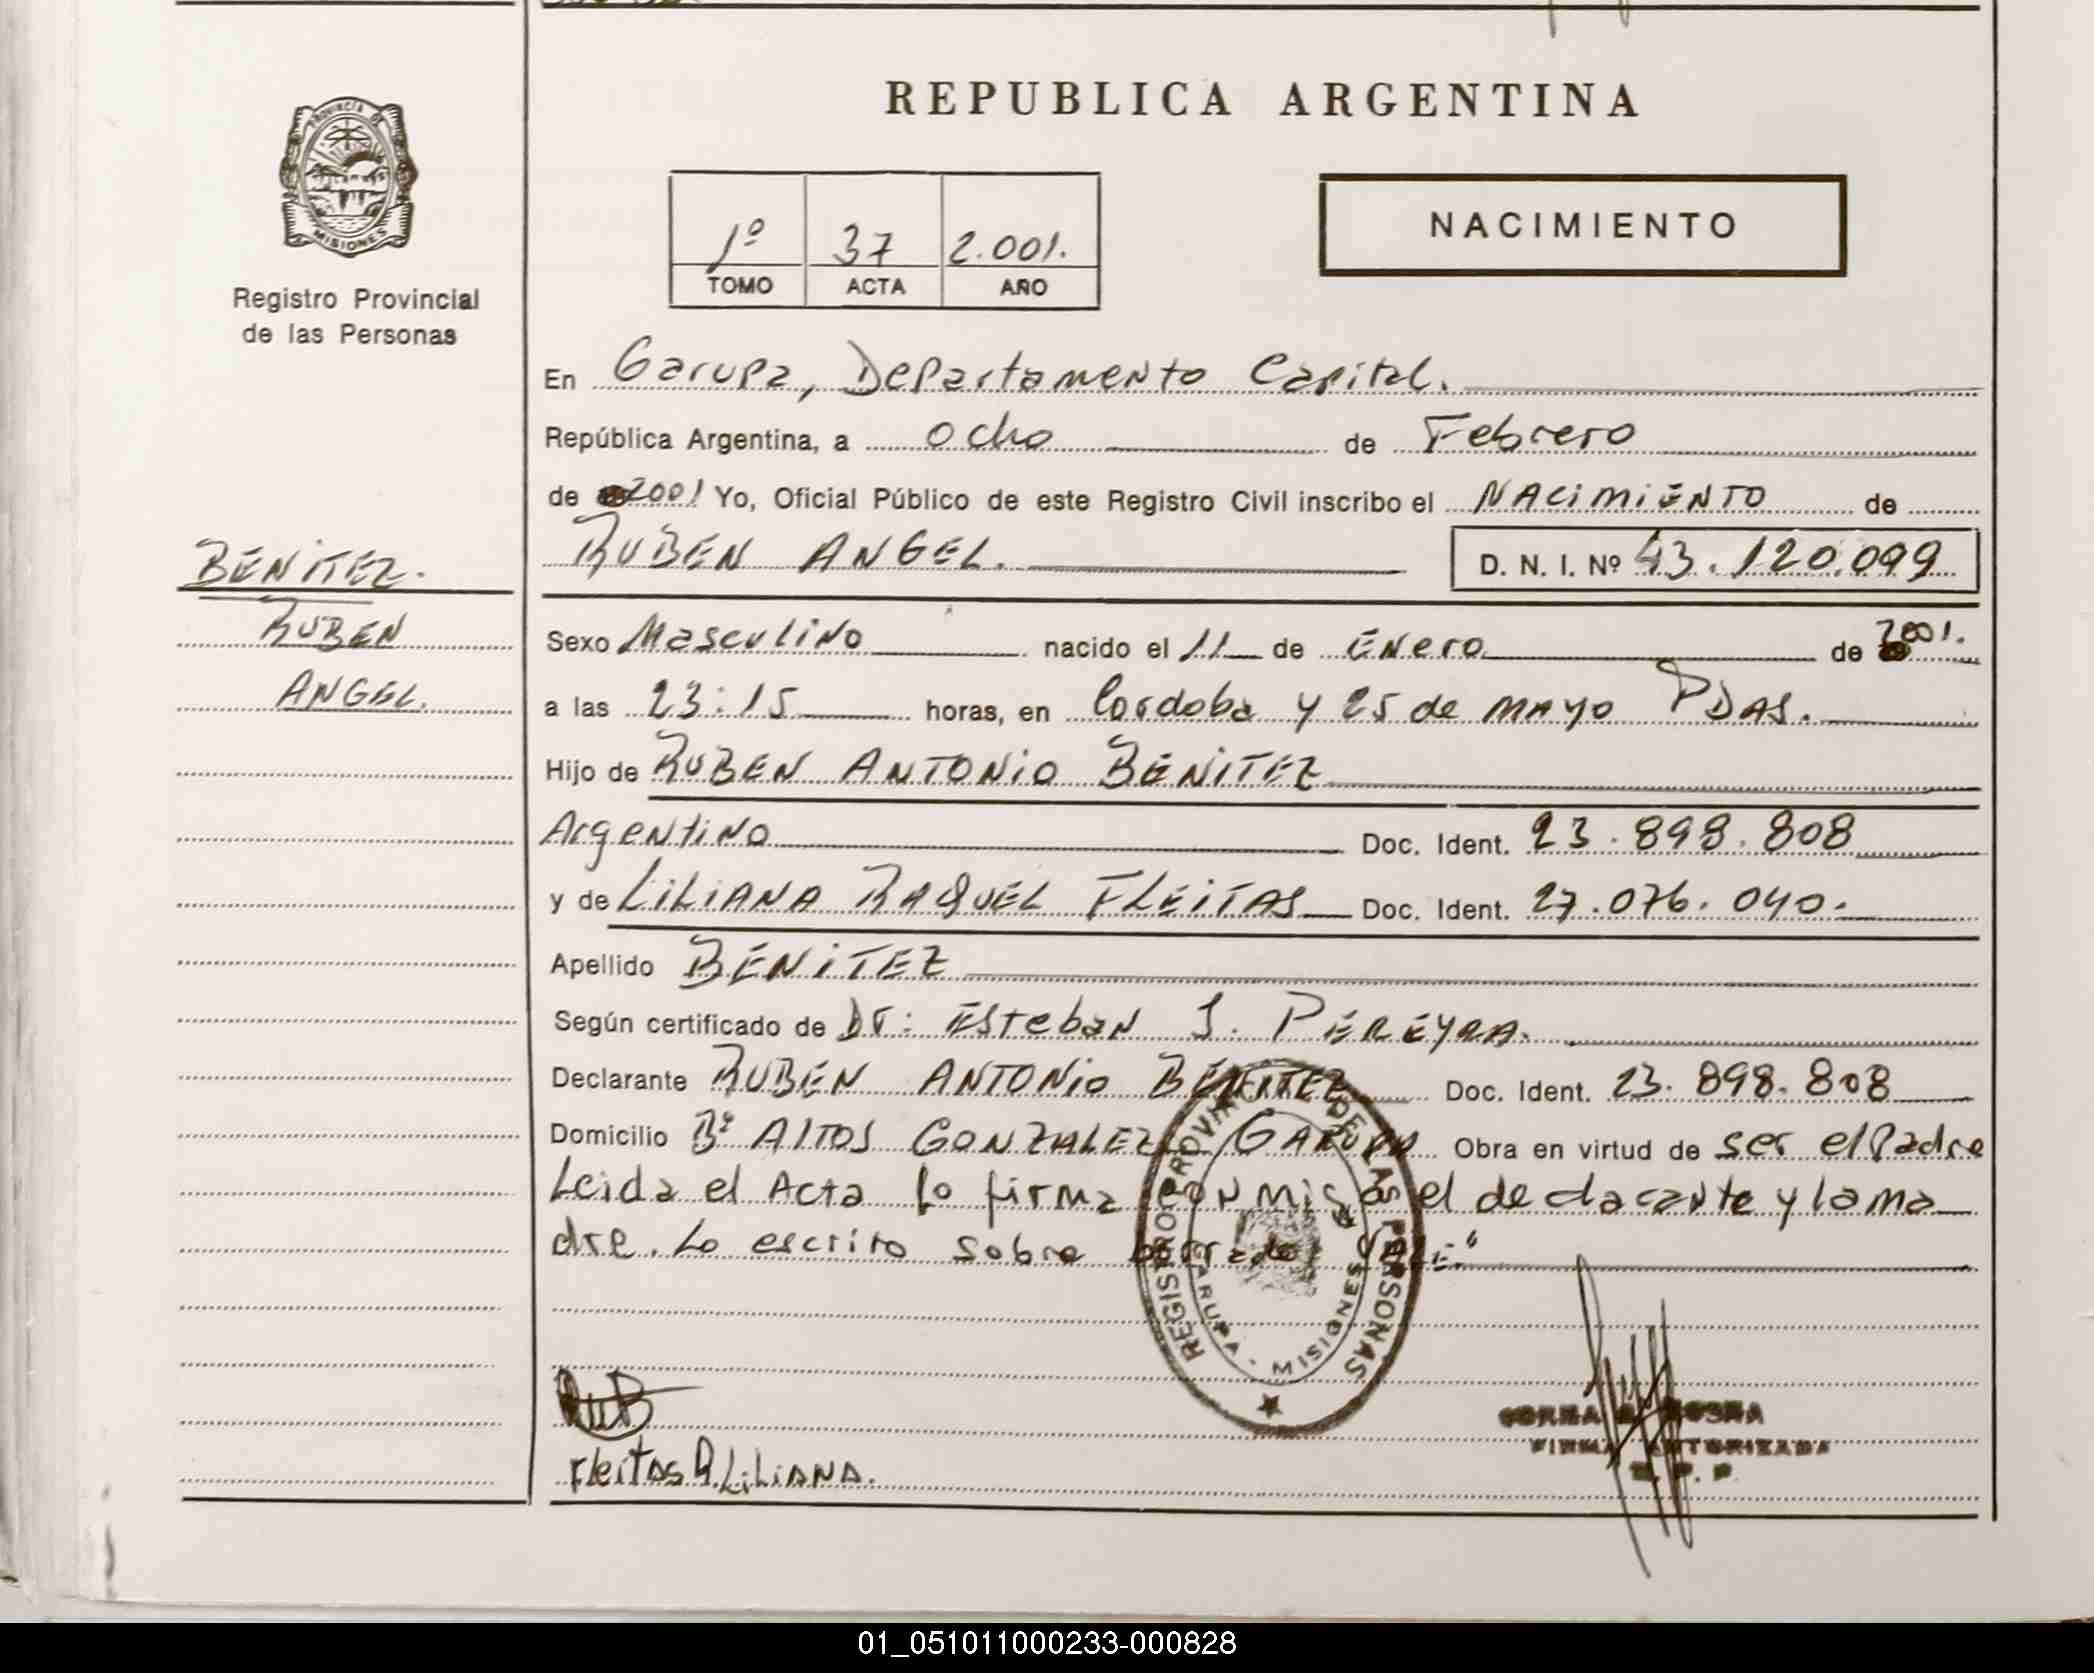 REPUBLICA ARGENTINA
PROVINCIA DE
MISIONES
Registro Provincial
de las Personas
1º 37 2.001.
TOMO ACTA AÑO
NACIMIENTO
En Garupa, Departamento Capital.
República Argentina, a Ocho de Febrero
de 2001 Yo, Oficial Público de este Registro Civil inscribo el NACIMIENTO de
RUBEN ANGEL. D. N. I. Nº 43.120.099
BENITEZ.
RUBEN
ANGEL.
Sexo Masculino nacido el 11 de Enero de 2001.
a las 23:15 horas, en Cordoba y 25 de MAYO PDAS.
Hijo de RUBEN ANTONIO BENITEZ
Argentino Doc. Ident. 23.898.808
y de LILIANA RAQUEL FLEITAS Doc. Ident. 27.076.040.
Apellido BENITEZ
Según certificado de Dr: Esteban J. PEREYRA.
Declarante RUBEN ANTONIO BENITEZ Doc. Ident. 23.898.808
Domicilio Bº ALTOS GONZALEZ GARUPA Obra en virtud de ser el Padre
Leida el Acta lo firma conmigo el declarante y la ma
dre. Lo escrito sobre borrado VALE"
REGISTRO PROVINCIAL DE LAS PERSONAS
GARUPA - MISIONES
Fleitas R. LiLiANA.
FIRMA AUTORIZADA
R. P. P.
01_051011000233-000828